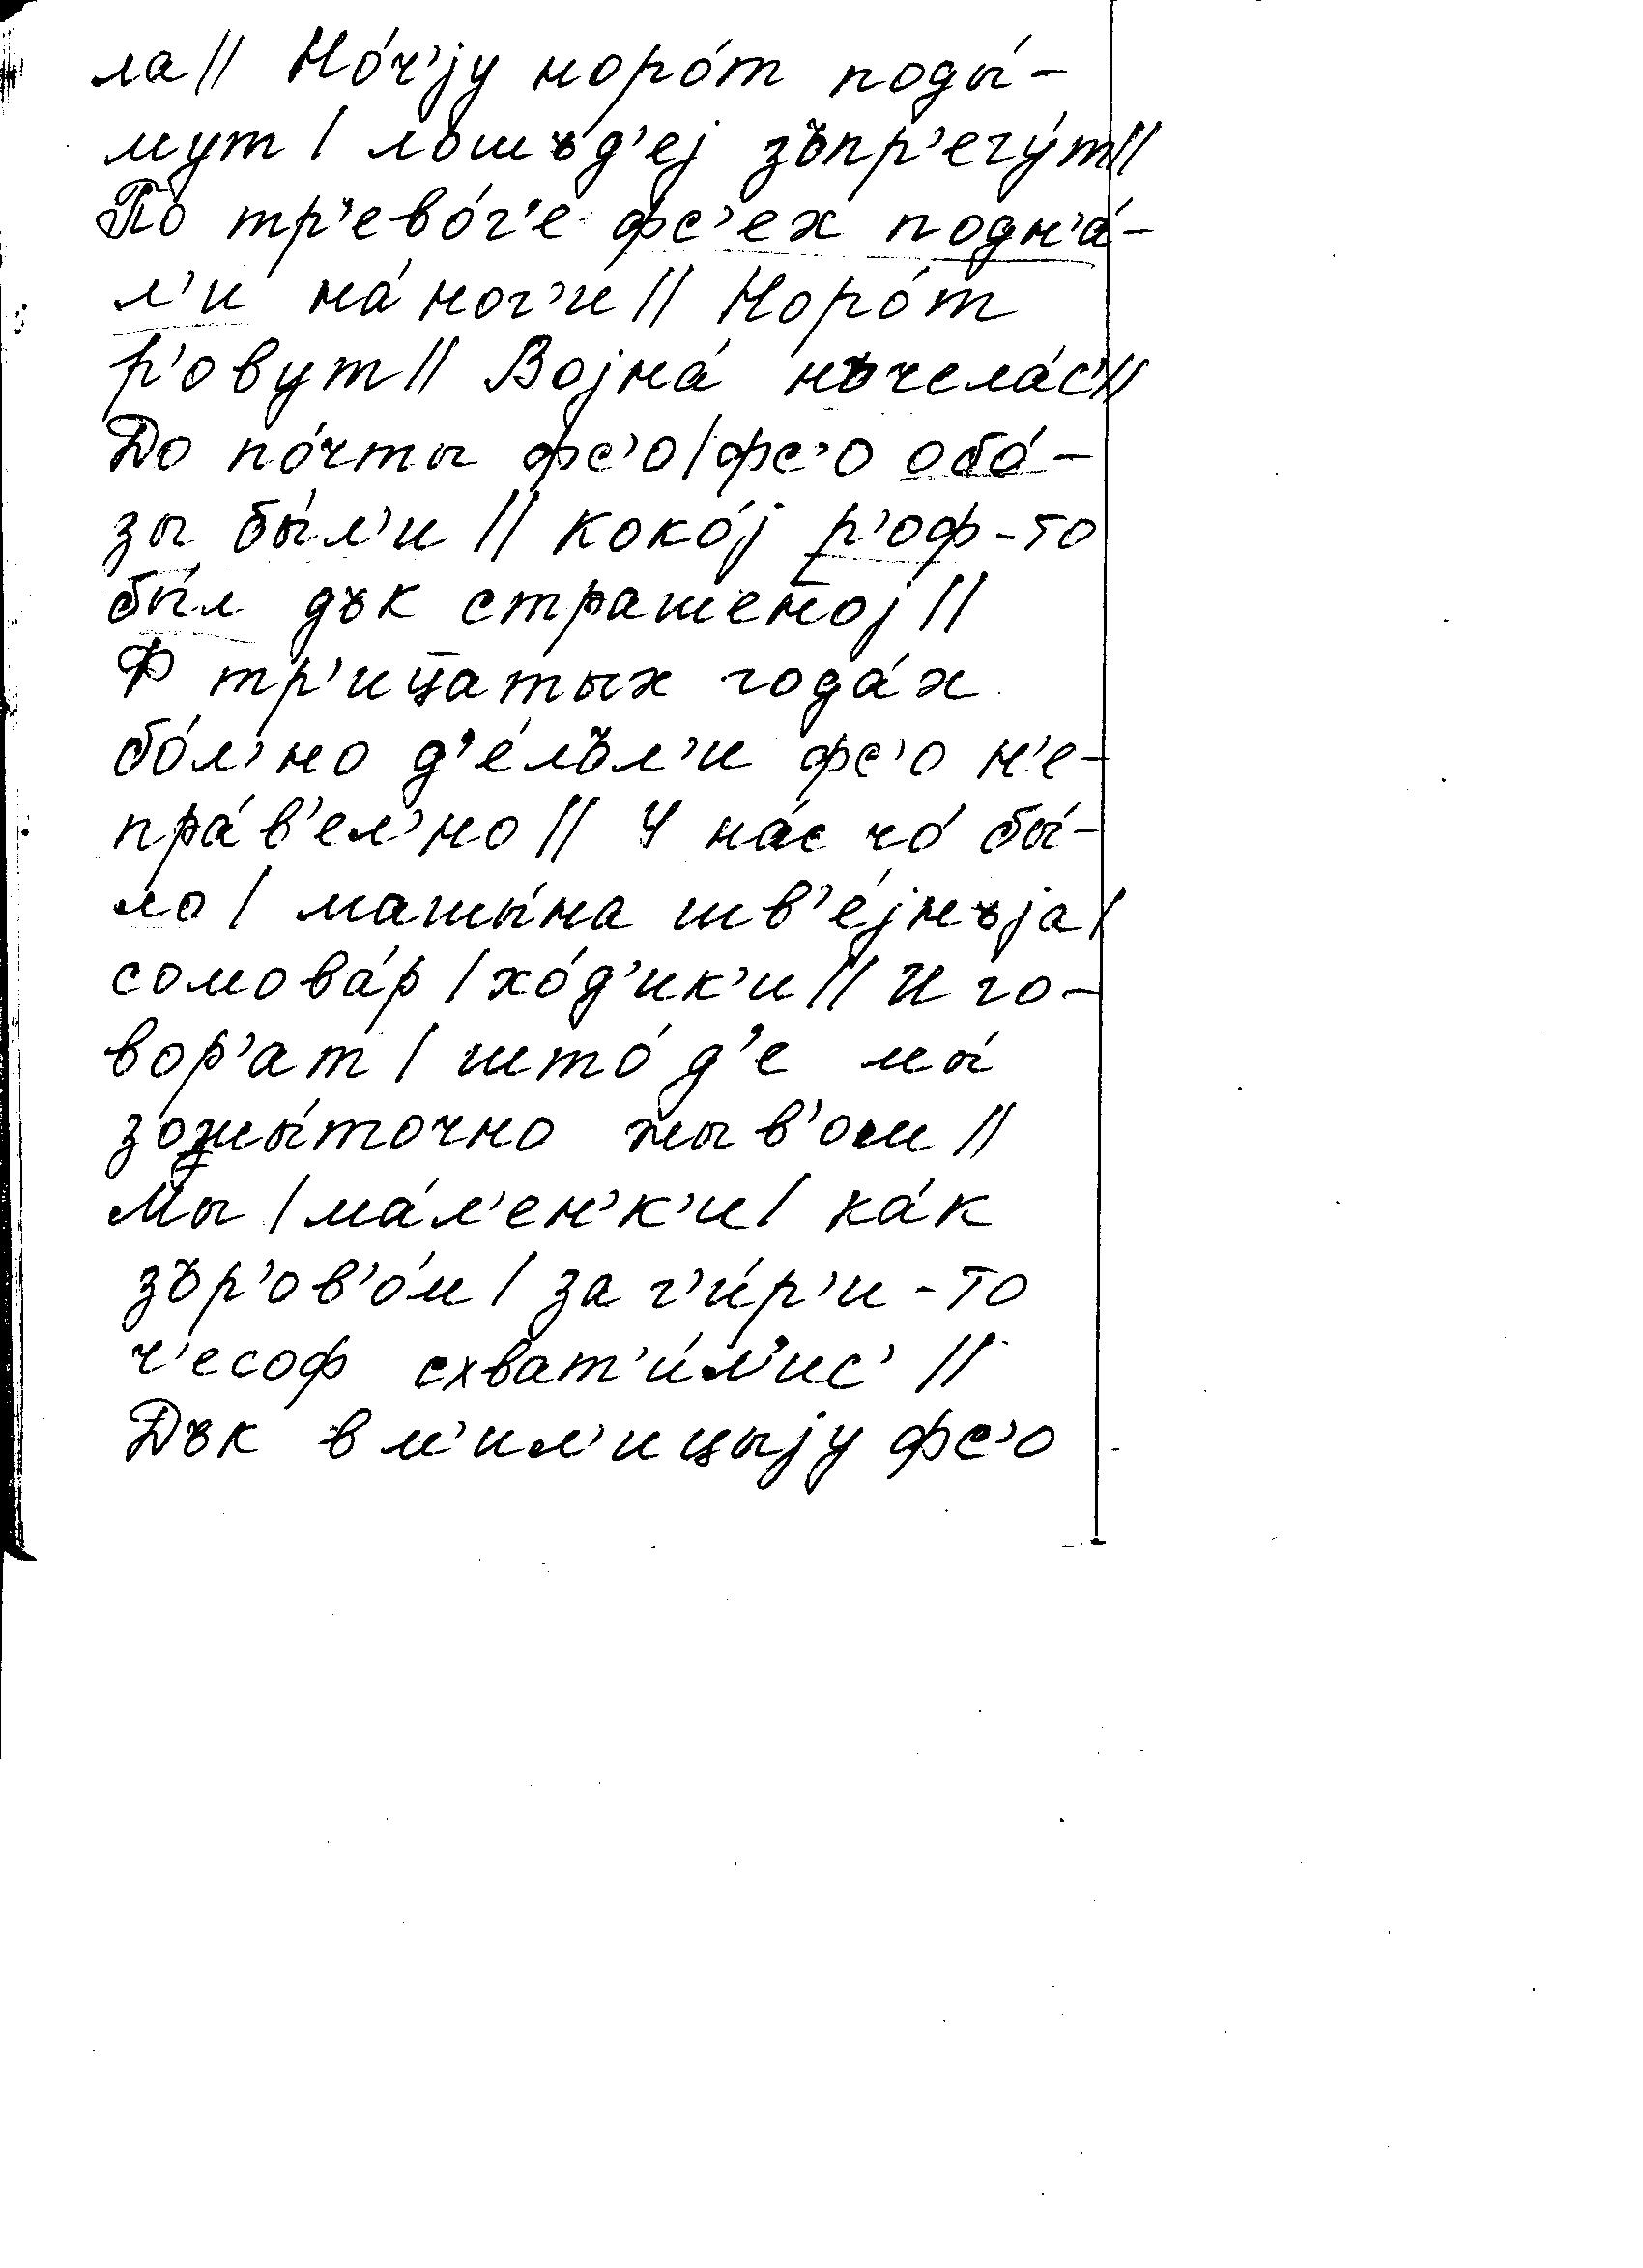 ла|| Но́ч'jу норо́т поды́-
мут | лошъд'еj зъпр'егу́т||
По тр'ево́г'е фс'ех подн'а́-
л'и на́ ног'и || Норо́т
р'овут || Воjна́ нъчела́с'||
До по́чты фс'о | фс'о обо́-
зы бы́л'и || Коко́j р'оф-то
бы́л дък страшен̄оj ||
Ф тр'иц̄атых года́х
бо́л'но д'е́лъл'и фс'о н'е-
пра́в'ел'но || У на́с чо́ бы́-
ло | машы́на шв'е́jнъjа |
сомова́р | хо́д'ик'и || И го-
вор'ат | што́ д'е мы́
зожы́точно жыв'ом ||
Мы | ма́л'ен'к'и | ка́к
зър'ов'о́м | за г'и́р'и-то
ч'есоф схват'и́л'ис' ||
Дък в м'ил'ицыjу фс'о